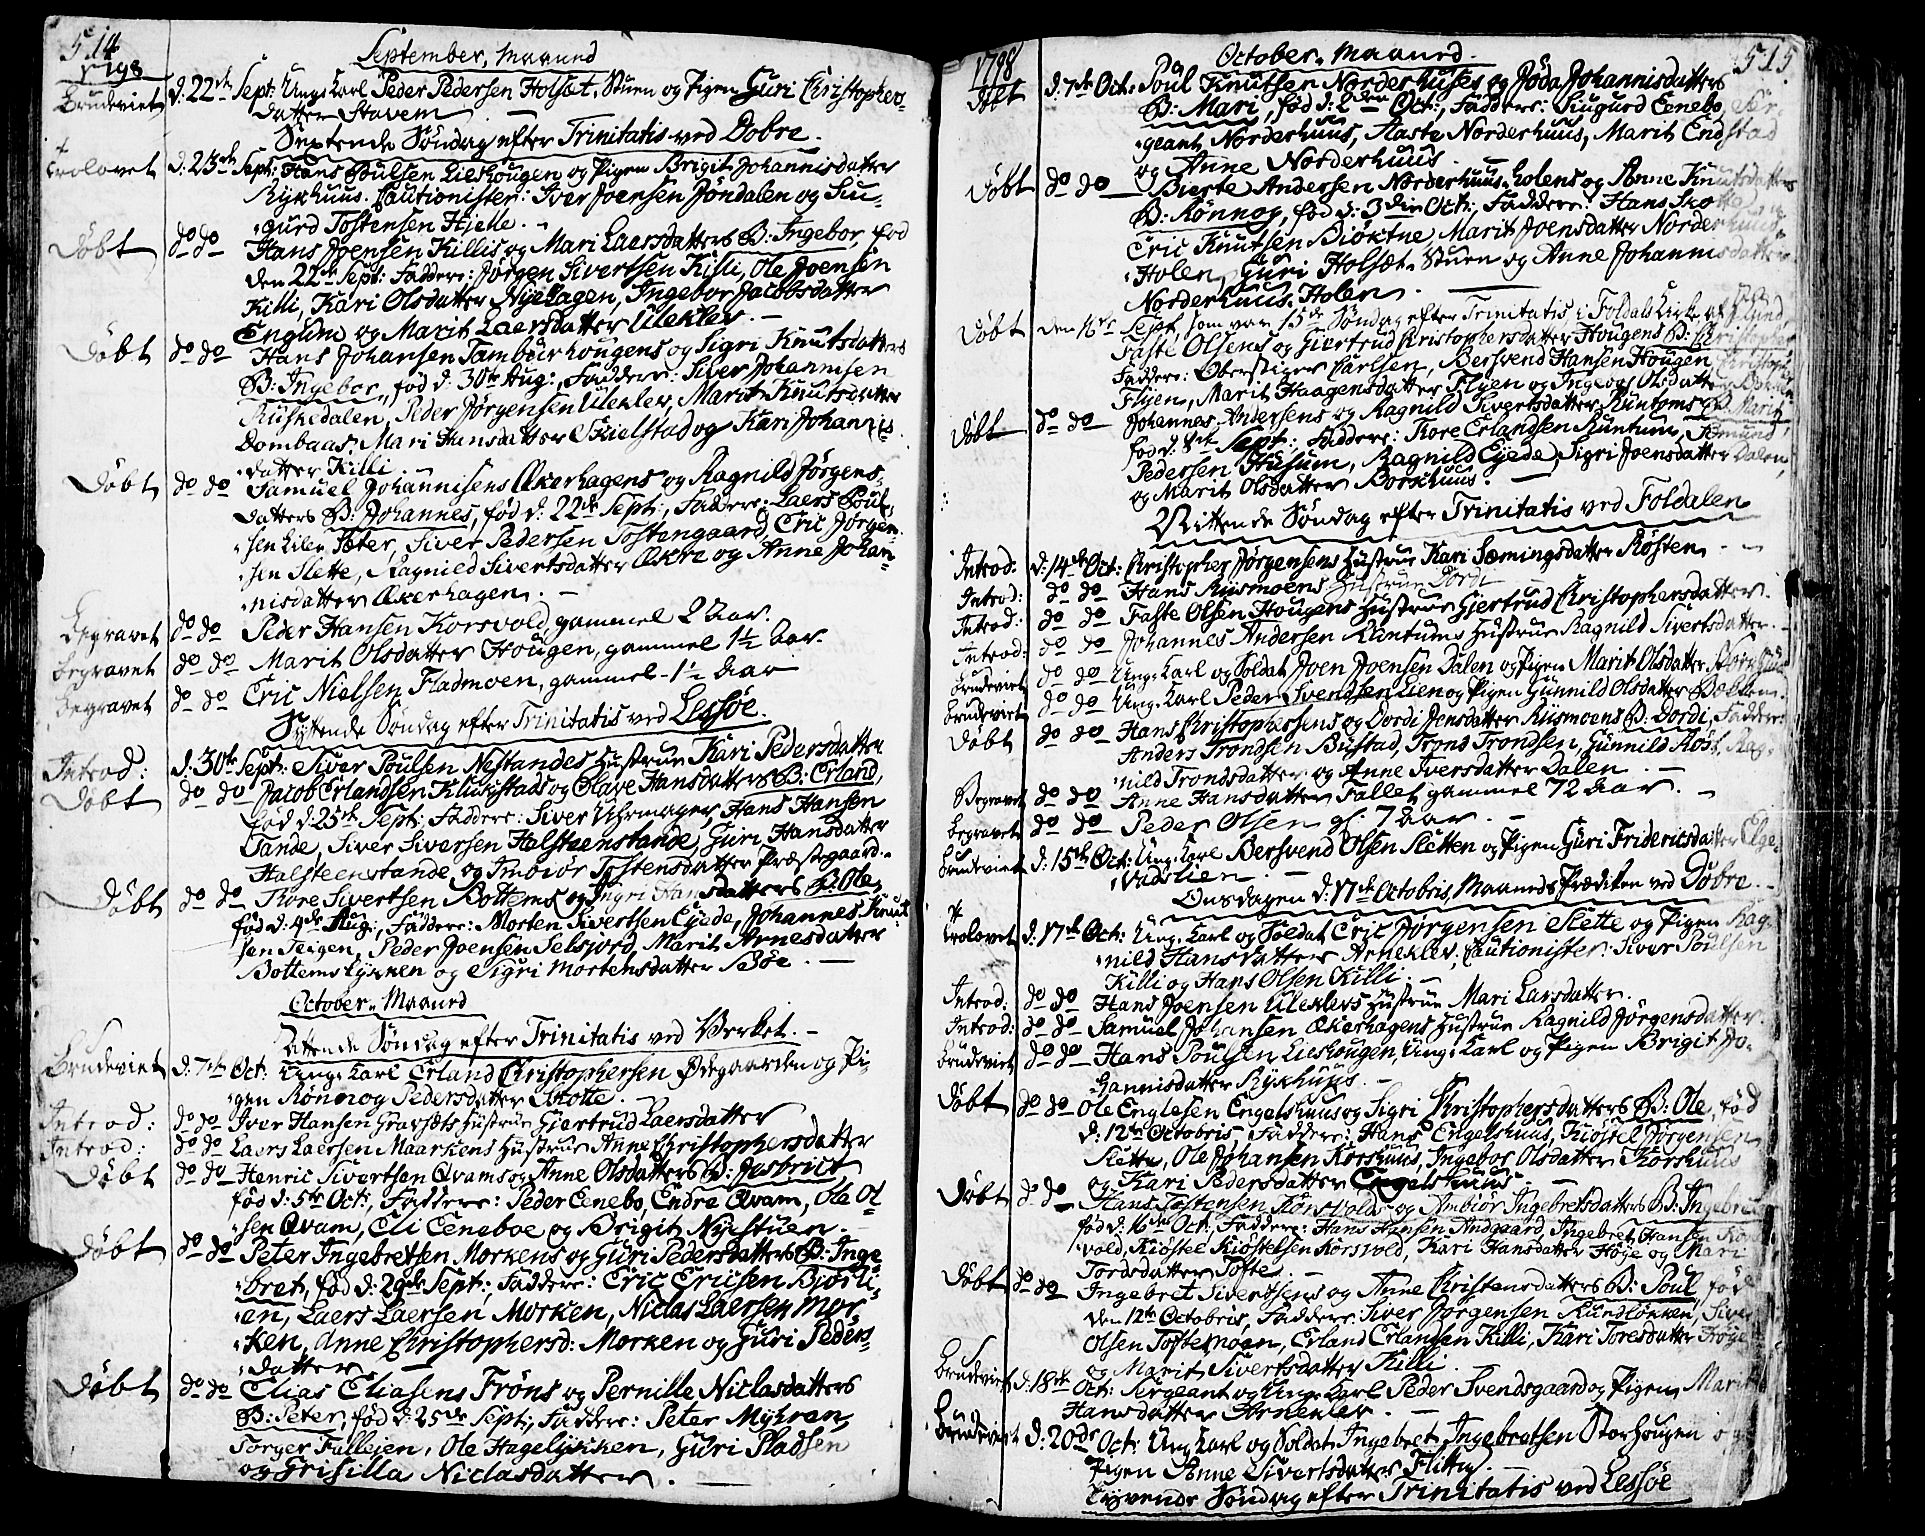 514
1798
September, Maaned
Brudeviet d: 22de Sept: Ung Karl Peder Pedersen Holset. Stuen og Pigen Guri Christophers-
datter Stavem
Sextende Søndag efter Trinitatis ved Dobre.
Trolovet d: 23de Sept: Hans Poulsen Lieshougen og Pigen Brigit Johannisdatter
Rykhuus. Cautionister: Iver Joensen Jondalen og Siu-
gurd Tostensen Hjelle.
Døbt do do Hans Joensen Killis og Mari Laersdatters B: Ingebor, fød
den 22de Sept: Faddere: Jørgen Sivertsen Killi, Ole Joensen
Killi, Kari Olsdatter Nyehagen, Ingebor Jacobsdatter
Englum og Marit Laersdatter Uleklev.
Døbt do do Hans Johansen Tamburhougens og Sigri Knutsdatters
B: Ingebor, fød d: 30te Aug:, Faddere: Siver Johannisen
Ruskedalen, Peder Jørgensen Uleklev, Marit Knutsdatter
Dombaas, Mari Hansdatter Skielstad og Kari Johannis-
datter Killi.
Døbt do do Samuel Johannisens Ækerhagens og Ragnild Jørgens-
datters B: Johannes, fød d: 22de Sept:, Faddere: Laers Poul-
sen Lilen Sæter, Siver Pedersen Tostengaard, Eric Jørgen-
sen Slette, Ragnild Sivertsdatter Ækre og Anne Johan-
nisdatter Ækerhagen.
Begravet do do Peder Hansen Korsvold, gammel 2 Aar.
begravet do do Marit Olsdatter Hougen, gammel 1½ Aar.
begravet do do Eric Nielsen Fladmoen, gammel 1½ Aar
Syttende Søndag efter Trinitatis ved Lessøe.
Introd: d: 30te Sept: Siver Poulsen Nestandes Hustrue Kari Pedersdatter
Døbt do do Jacob Erlandsen Klukstads og Olave Hansdatters B: Erland,
fød d: 25de Sept; Faddere: Siver Uhrmager, Hans Hansen
Sande, Siver Siversen Halsteenstande, Guri Hansdatter
Halsteenstande og Imbiør Tostensdatter Præstegaard.
Døbt do do Tore Sivertsen Bottems og Ingri Hansdatters B: Ole,
fød d: 4de Aug:, Faddere: Morten Sivertsen Ejede, Johannes Knut-
sen Teigen, Peder Joensen Selsjord, Marit Arnesdatter
Bottemslykken og Sigri Mortensdatter Bøe.
October, Maaned
Attende Søndag efter Trinitatis ved Verket.
Brudeviet d: 7de Oct: Ung Karl Erland Christophersen Ødegaarden og Pi-
gen Rønnog Pedersdatter Skotte.
Introd: do do Iver Hansen Gravsets Hustrue Giertrud Laersdatter
Introd: do do Laers Laersen Maarkens Hustrue Anne Christophersdatter
Døbt do do Henric Sivertsen Qvams og Anne Olsdatters B: Josbrict
fød d: 5te Oct:, Faddere: Peder Eenebo, Endre Qvam, Ole Ol-
sen Qvam, Eli Eeneboe og Brigit Nystuen.
Døbt do do Peter Ingebretsen Morkens og Guri Pedersdatters B: Inge-
bret, fød d: 29de Sept: Faddere: Eric Ericsen Biørli-
en, Laers Laersen Morken, Niclas Laersen Mor-
ken, Anne Christophersd: Morken og Guri Peders-
datter
Døbt do do Elias Eliasens Frøns og Pernille Niclasdatters
B: Peter, fød d: 25de Sept:, Faddere: Peter Myhren,
Torger Fallejen, Ole Hagelykken, Guri Pladsen
og Grisilla Niclasdatter.
1798
October. Maaned
515
Døbt d: 7de Oct: Poul Knutsen Norderhuses og Jøda Johannisdatters
B: Mari, fød d: 2den Oct:, Faddere: Siugurd Eenebo, Ser-
geant Norderhuus, Aaste Norderhuus, Marit Endstad
og Anne Norderhuus.
Døbt do do Bierte Andersen Norderhuus-holens og Anne Knutsdatters
B: Rønnog, fød d: 3die Oct:, Faddere: Hans Skotte,
Eric Knutsen Biøktne, Marit Joensdatter Norderhuus-
Holen, Guri Holset-Stuen og Anne Johannisdatter
Norderhuus-Holen.
Døbt den 16de Sept, som var 15de Søndag efter Trinitatis i Foldals Kirke af
Faste Olsens og Giertrud Christophersdatter Hougens B:
Faddere: Oberstiger Carlsen, Bersvend Hansen Hougen,
Flyen, Marit Haagensdatter Flyen og Ingebor Olsdatter
Døbt do do Johannes Andersens og Ragnild Sivertsdatter Kuntums B: Marit,
fød d: 8de Sept: Faddere: Tore Erlandsen Kuntum, Semund
Pedersen Husum, Ragnild Ejede, Sigri Joensdatter Dalen,
og Marit Olsdatter Borkhuus.
Nittende Søndag efter Trinitatis ved Foldalen
Introd: d: 14de Oct: Christopher Jørgensens Hustrue Kari Semingsdatter Røsten
Introd: do do Hans Rysmoens Hustrue Dordi
Introd: do do Faste Olsen Hougens Hustrue Gjertrud Christophersdatter.
Introd: do do Johannes Andersen Kuntums Hustrue Ragnild Sivertsdatter.
Brudeviet do do Ung Karl og Soldat Joen Joensen Dalen og Pigen Marit Olsdatter
Brudeviet do do Ung Karl Peder Svendsen Lien og Pigen Gunnild Olsdatter Bekken.
Døbt do do Hans Christophersens og Dordi Jensdatter Rusmoens B: Dordi, Faddere:
Anders Trondsen Bustad, Trond Trondsen, Gunnild Røst, Rag-
nild Trondsdatter og Anne Iversdatter Dalen.
Begravet do do Anne Hansdatter Fallet gammel 72 Aar.
begravet do do Peder Olsen gl. 7 Aar.
Brudeviet d: 15de Oct: Ung Karl Bersvend Olsen Sletten og Pigen Guri Fridericsdatter Elge-
vadslien.
Onsdagen d: 17de Octobris, Maaneds Prædiken ved Dobre.
Trolovet d: 17de Oct: Ung Karl og Soldat Eric Jørgensen Slette og Pigen Rag-
nild Hansdatter Arneklev, Cautionister: Siver Poulsen
Killi og Hans Olsen Killi
Introd: do do Hans Joensen Uleklevs Hustrue Mari Larsdatter.
Introd: do do Samuel Johansen Ækerhagens Hustrue Ragnild Jørgensdatter
Brudeviet do do Hans Poulsen Lieshougen, Ung Karl og Pigen Brigit Jo-
hannisdatter Rykhuus.
Døbt do do Ole Englesen Engelshuus og Sigri Christophersdatters B: Ole, fød
d: 12te Octobris, Faddere: Hans Engelshuus, Kiøstel Jørgensen
Slette, Ole Johansen Korshuus, Ingebor Olsdatter Korshuus
og Kari Pedersdatter Engelshuus.
Døbt do do Hans Tostensen Konsvolds og Ambiør Ingebretsdatters B: Ingebret
fød d: 16de Oct:, Faddere: Hans Hansen Andgaard, Ingebret Hansen Kors-
vold, Kiøstel Kiøstelsen Korsvold, Kari Hansdatter Høye og Mari
Tordsdatter Tofte
Døbt do do Ingebret Sivertsens og Anne Christensdatters B: Poul, fød
den 12te Octobris, Faddere: Siver Jørgensen Rundløkken, Siver
Olsen Toftemoen, Erland Erlandsen Killi, Kari Toresdatter
og Marit Sivertsdatter Killi.
Brudeviet d: 18de Oct: Sergeant og Ung Karl Peder Svendsgaard og Pigen Marit
Hansdatter Arneklev.
Brudeviet d: 20de Oct: Ung Karl og Soldat Ingebret Ingebretsen Storhougen og
Pigen Anne Sivertsdatter Flitty.
Tyvende Søndag efter Trinitatis ved Lessøe